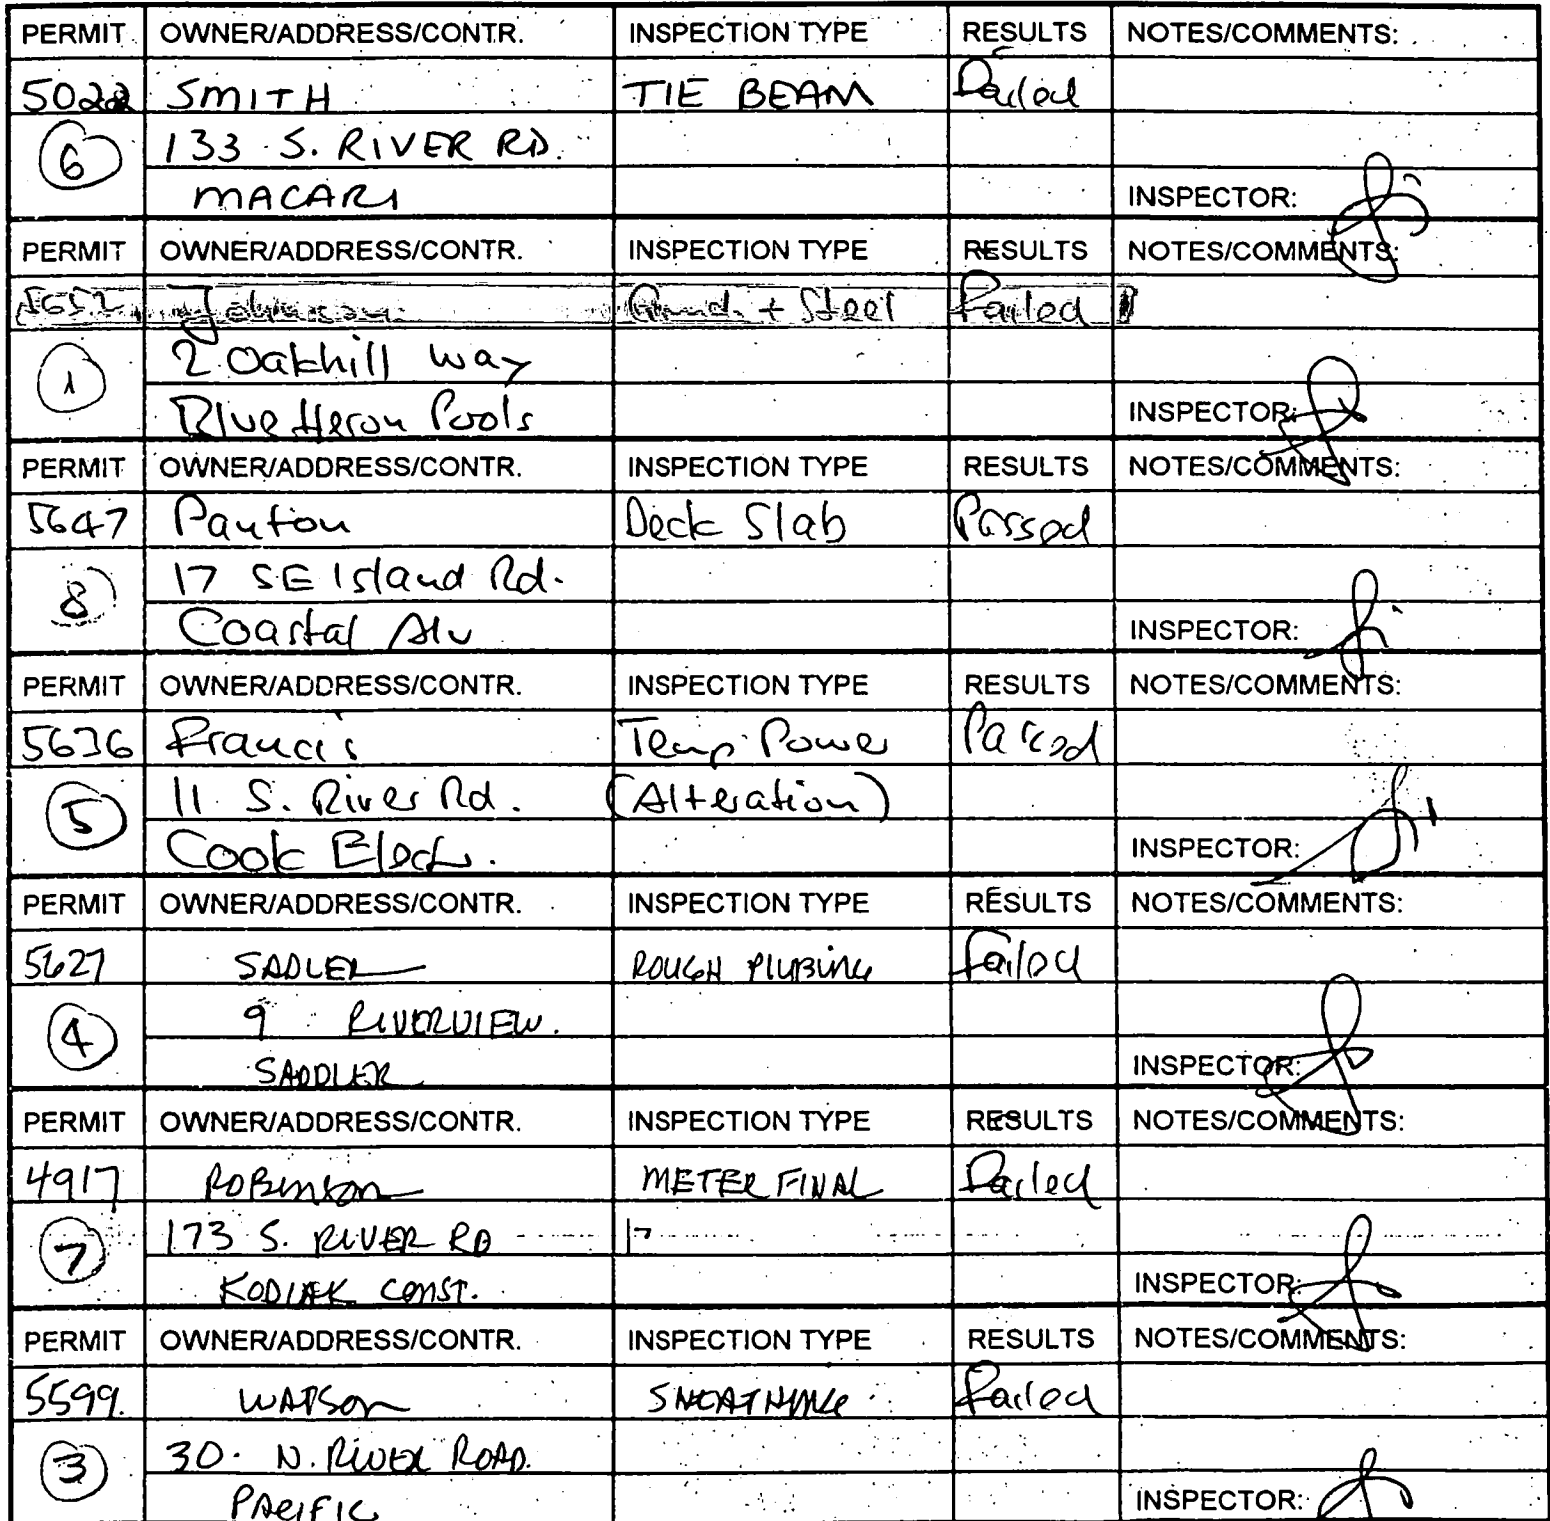 PERMIT OWNER/ADDRESS/CONTR. INSPECTION TYPE RESULTS NOTES/COMMENTS:
SMITH TIE BEAM
6 133 S. RIVER RD.
MACARI INSPECTOR:
PERMIT OWNER/ADDRESS/CONTR. INSPECTION TYPE RESULTS NOTES/COMMENTS:
5652 Johnson + Steel Failed
1 2 Oakhill Way
Blue Heron Pools INSPECTOR:
PERMIT OWNER/ADDRESS/CONTR. INSPECTION TYPE RESULTS NOTES/COMMENTS:
5647 Deck Slab Passed
8 17 SE Island Rd.
Coastal Alu INSPECTOR:
PERMIT OWNER/ADDRESS/CONTR. INSPECTION TYPE RESULTS NOTES/COMMENTS:
5636 Francis Temp. Power Passed
5 11 S. River Rd. (Alteration)
Cook Elect. INSPECTOR:
PERMIT OWNER/ADDRESS/CONTR. INSPECTION TYPE RESULTS NOTES/COMMENTS:
5627 SADLER ROUGH PLUBING Failed
4 9 RIVERVIEW.
SADDLER INSPECTOR:
PERMIT OWNER/ADDRESS/CONTR. INSPECTION TYPE RESULTS NOTES/COMMENTS:
4917 ROBINSON METER FINAL
7 173 S. RIVER RD
KODIAK CONST. INSPECTOR:
PERMIT OWNER/ADDRESS/CONTR. INSPECTION TYPE RESULTS NOTES/COMMENTS:
5599. WATSON SHEATHING Failed
3 30 N. RIVER ROAD.
PACIFIC INSPECTOR: